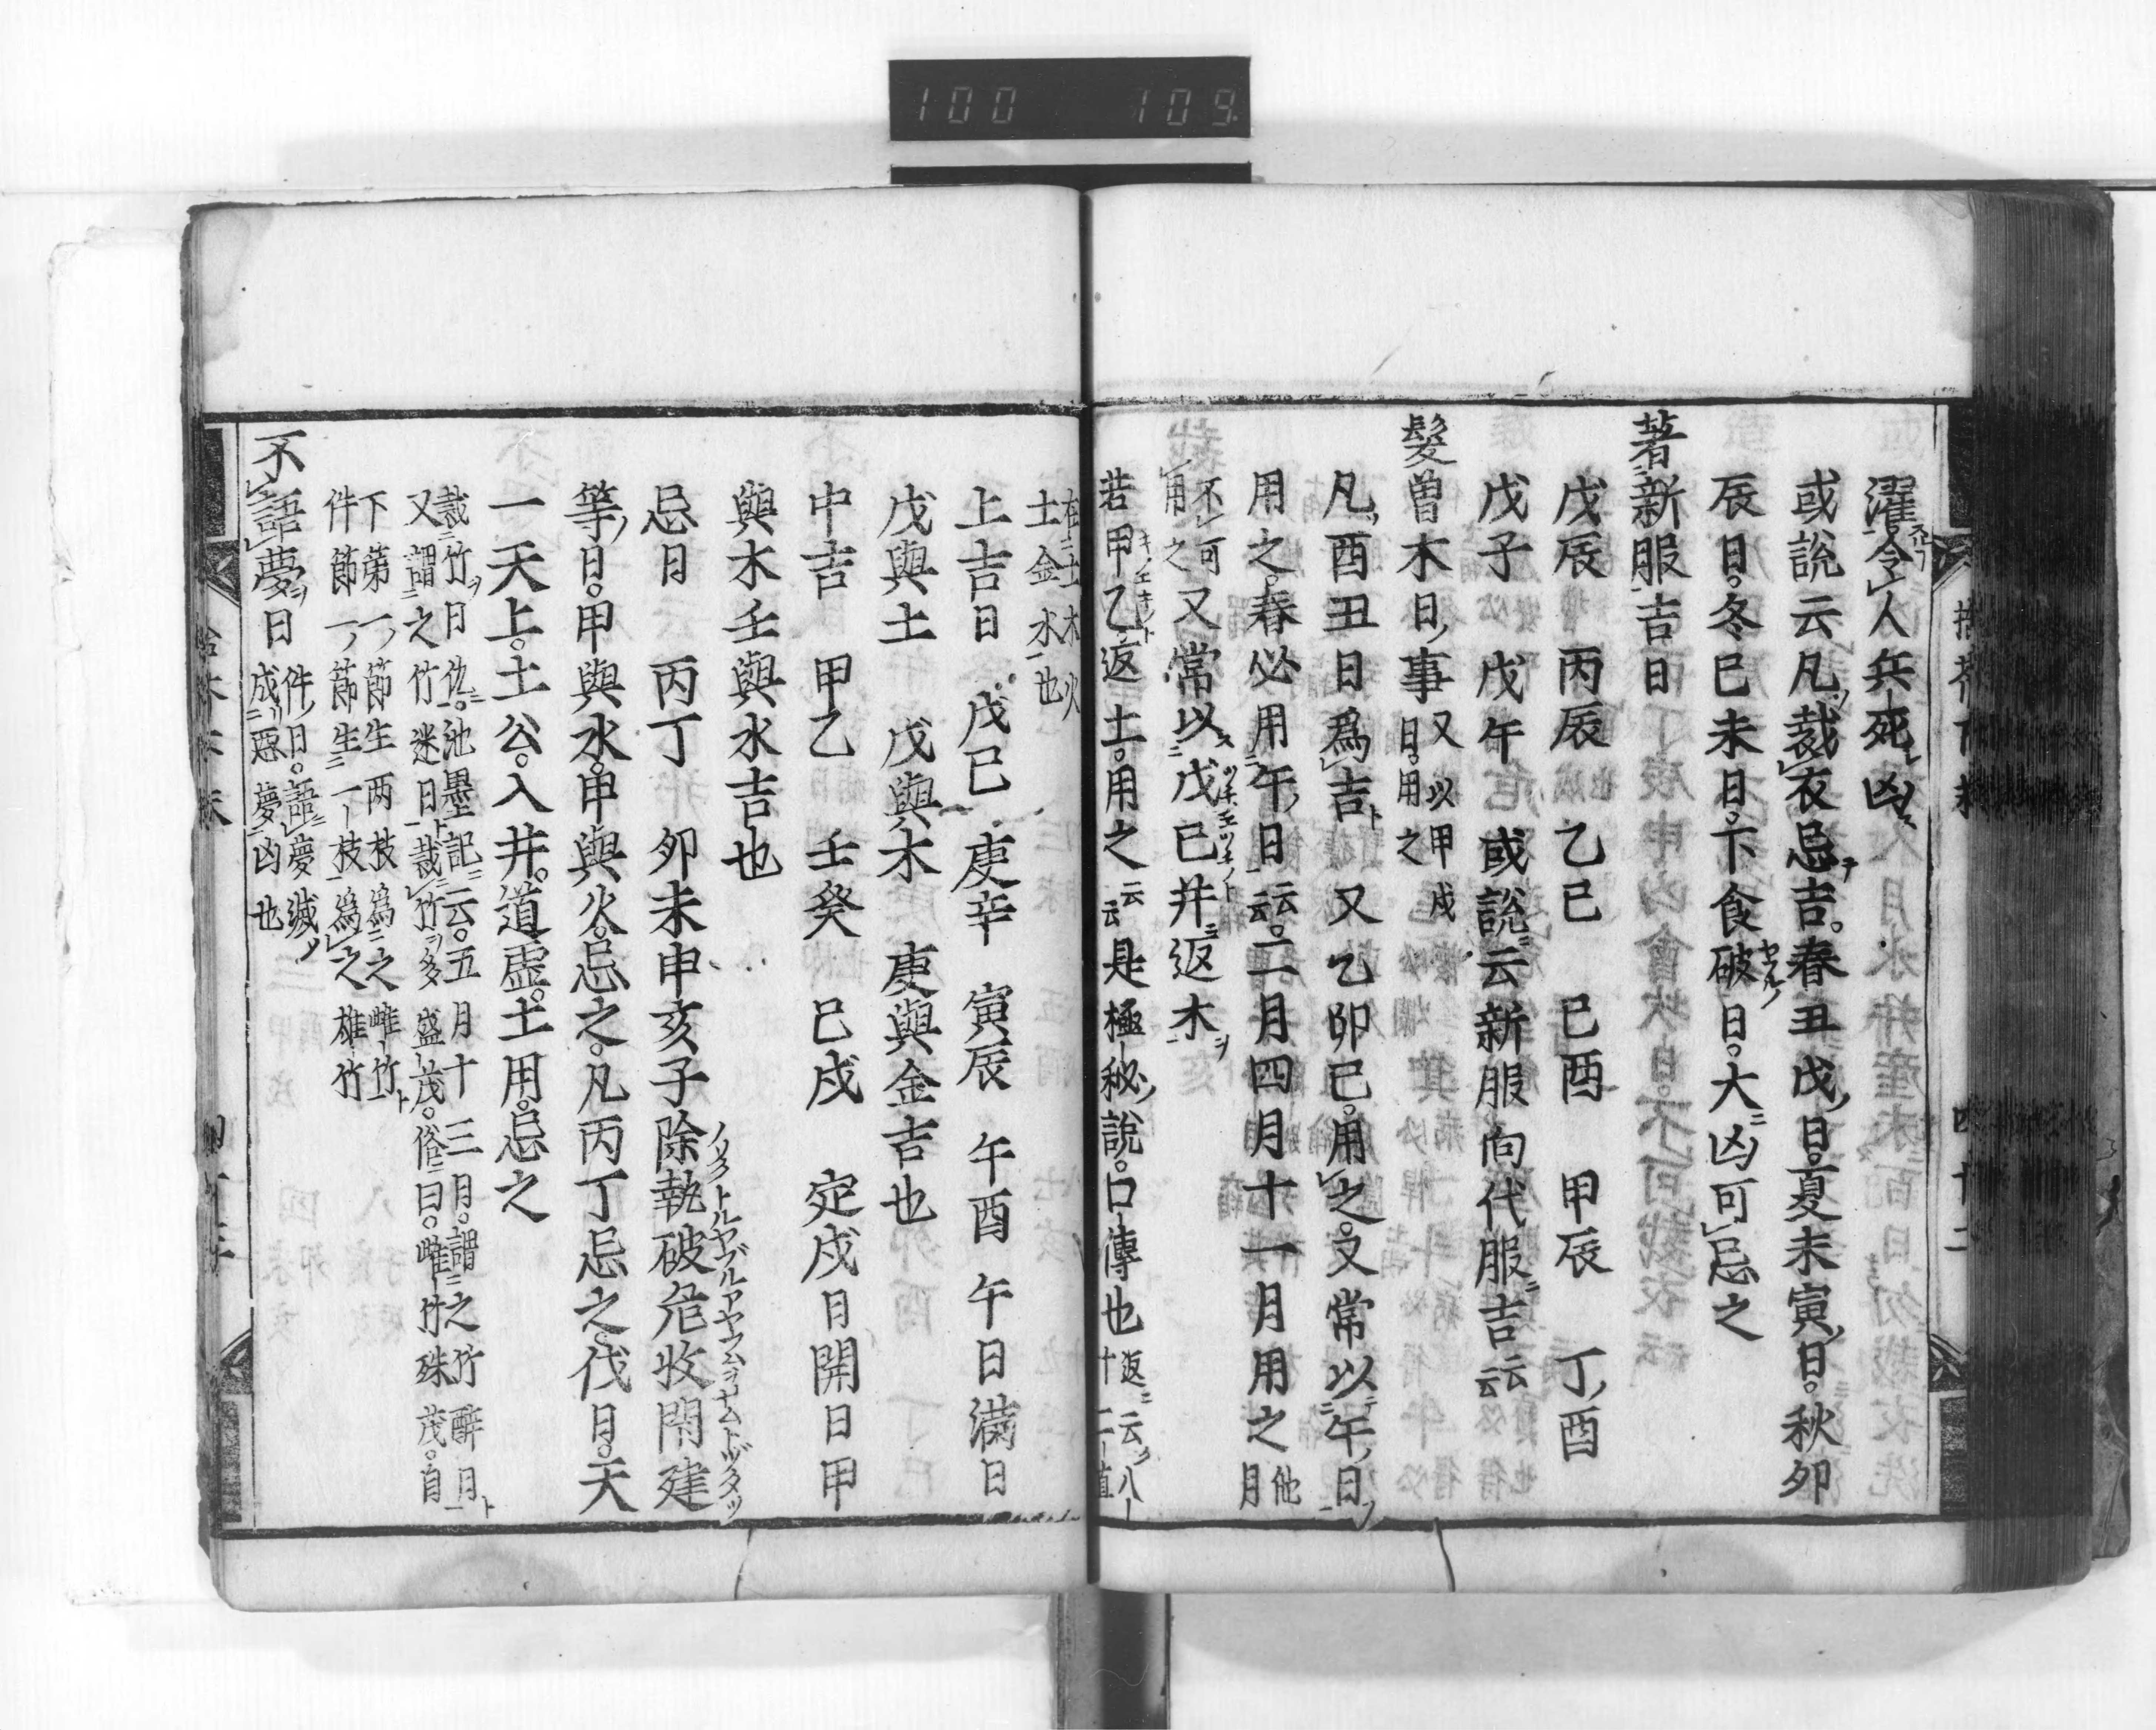 100 109
濯令人兵死凶
或説云凡裁衣忌吉。春丑戊日。夏未寅日。秋卯
辰日。冬巳未日。下食破日。大凶可忌之
著新服吉日
戊辰 丙辰 乙巳 巳酉 甲辰 丁酉
戊子 戊午 或説云新服向代服吉云云
髪曽木日事又以甲戌日。用之
凡酉丑日為吉 又乙卯巳。用之。又常以午日
用之。春必用午日云云。二月四月十一月用之他月
不可用之又常以戊巳并返木
若甲乙返土。用之云云是極秘説。口傳也返云八十二直
在土木火
土金水也
上吉日 戊巳 庚辛 寅辰 午酉 午日満日
戊與土 戊與木 庚與金吉也
中吉 甲乙 壬癸 巳戌 定戌日開日甲
與木壬與水吉也
忌日 丙丁 卯未申亥子除執破危收閇建
等日。甲與水。申與火。忌之。凡丙丁忌之。伐日。天
一天上。土公。入井。道虚。土用。忌之
裁竹日 仇池墨記云。五月十三月。謂之竹醉日
又謂之竹迷日裁竹多盛茂。俗曰。雌竹殊茂。自
下第一節生両枝為之雌竹
件節一節生一枝為之雄竹
不語夢日件日。語夢滅成惡夢凶也